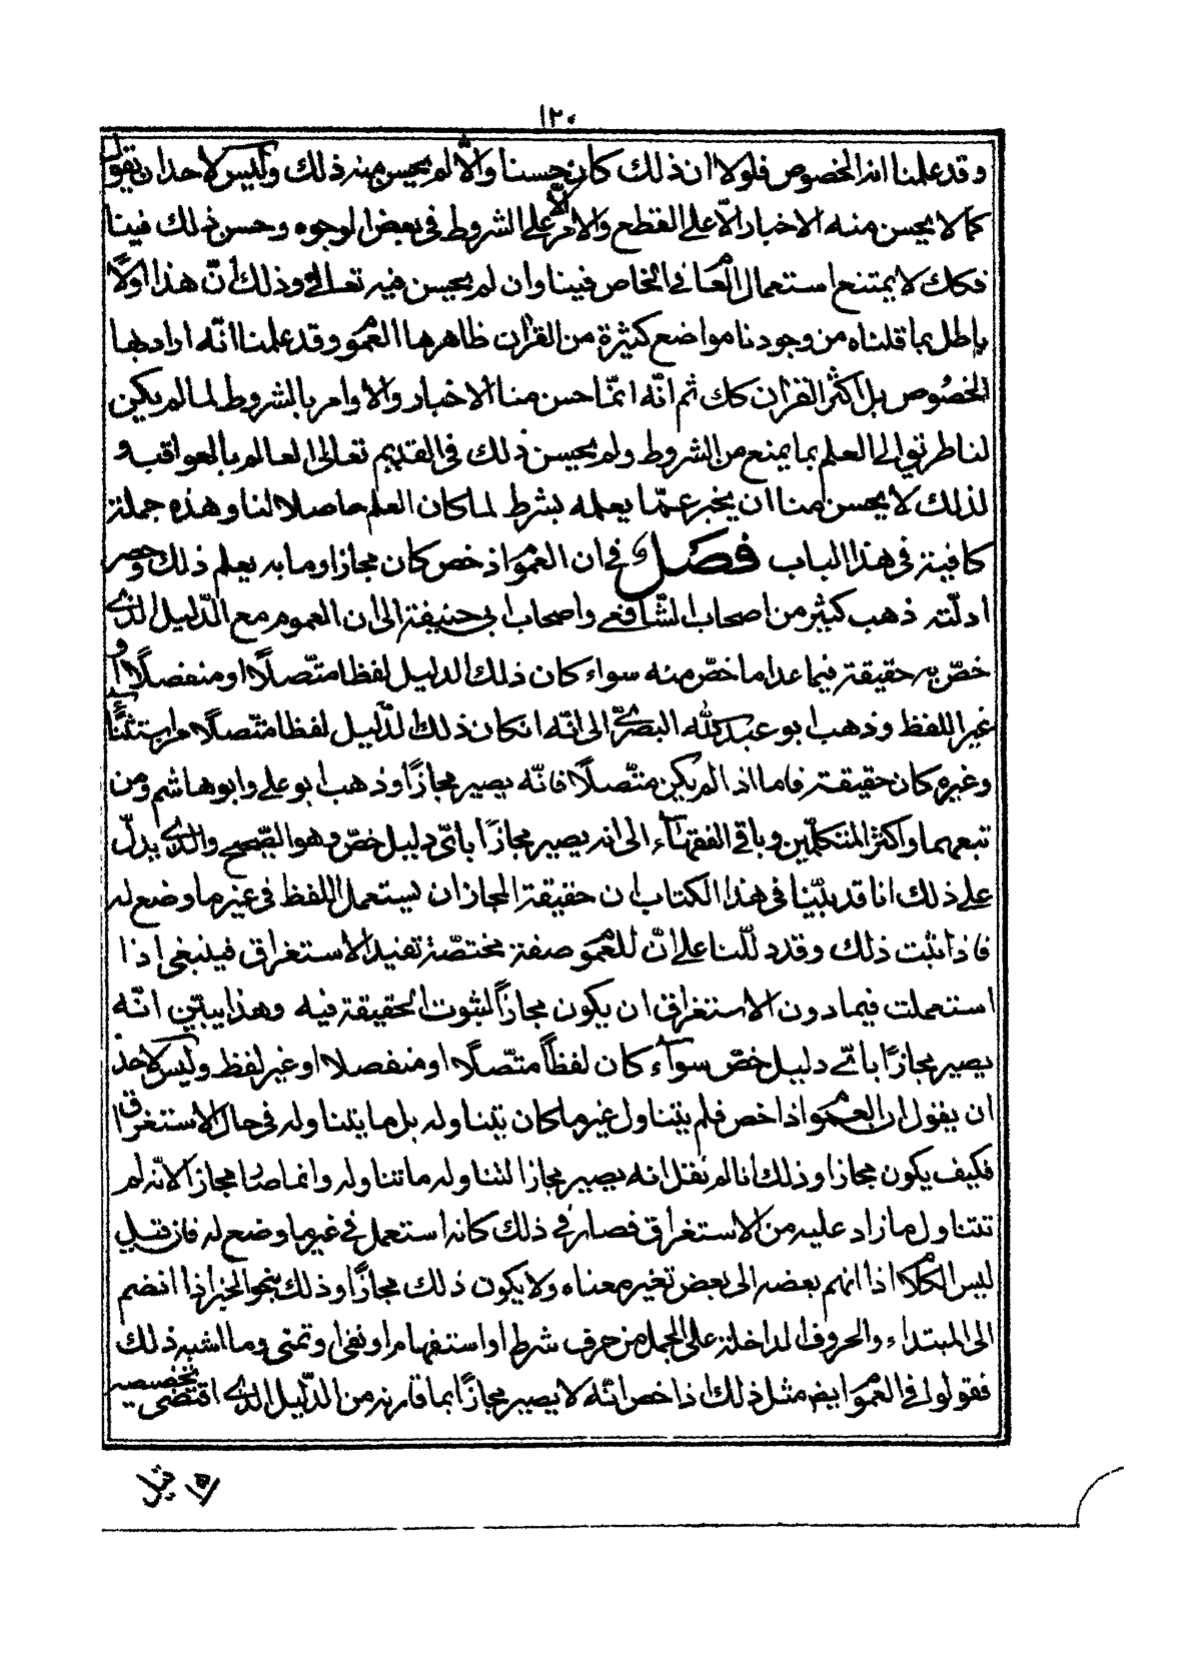 ١٢٠
وقد علمنا انه الخصوص فلولا ان ذلك كان حسنا والّا لم يحسن منه ذلك وليس لاحد ان يقول
كما لا يحسن منه الاخبار الّا على القطع والامر الّا على الشروط في بعض الوجوه وحسن ذلك فينا
فكك لا يمتنع استعمال العام في الخاص فينا وان لم يحسن فيه تعالى وذلك انّ هذا اوّلا
باطل بما قلناه من وجودنا مواضع كثيرة من القران ظاهرها العموم وقد علمنا انّه اراد بها
الخصُوص بل اكثر القران كك ثم انّه انّما حسن منا الاخبار والاوامر بالشروط لما لم يكن
لنا طريق الى العلم بما يمنع من الشروط ولم يحسن ذلك في القديم تعالى العالم بالعواقب و
لذلك لا يحسن منا ان يخبر عمّا يعلمه بشرط لما كان العلم حاصلا لنا وهذه جملة
كافية في هذا الباب فصل في ان العموم اذ خص كان مجازا وما به يعلم ذلك وحصر
ادلّته ذهب كثير من اصحاب الشّافعي واصحاب ابي حنيفة الى ان العموم مع الدّليل الذي
خصّ به حقيقة فيما عدا ما خصّ منه سواء كان ذلك الدليل لفظا متّصلًا او منفصلًا او
غير اللفظ وذهب ابو عبد الله البصريّ الى انّه ان كان ذلك الدّليل لفظا متّصلًا من استثناء
وغيره كان حقيقة فاما اذ الم يكن متّصلًا فانّه يصير مجازًا وذهب ابو على وابو هاشم ومن
تبعهما واكثر المتكلّمين وباقي الفقهاء الى انه يصير مجازًا باىّ دليل خصّ وهو الصّحيح والذي يدلّ
على ذلك انا قد بيّنا في هذا الكتاب ان حقيقة المجاز ان يستعمل اللفظ في غير ما وضع له
فاذا ثبت ذلك وقد دلّلنا على انّ للعموم صفة مختصّة تفيد الاستغراق فينبغى اذا
استعملت فيما دون الاستغراق ان يكون مجازًا لثبوت الحقيقة فيه وهذا يبيّن انّه
يصير مجازًا باىّ دليل خصّ سواء كان لفظًا متّصلًا او منفصلا او غير لفظ وليس لاحد
ان يقول ان العموم اذا خص فلم يتناول غير ما كان يتناوله بل ما يتناوله في حال الاستغراق
فكيف يكون مجازا وذلك انا لم نقل انه يصير مجازا لتناوله ما تناوله وانما صار مجازا لانّه لم
تتناول ما زاد عليه من الاستغراق فصار في ذلك كانه استعمل في غير ما وضع له فان قيل
ليس الكلام اذا انهم بعضه الى بعض تغير معناه ولا يكون ذلك مجازًا وذلك نحو الخبر اذا انضم
الى المبتداء والحروف الداخلة على الجمل من حرف شرط او استفهام او نفى او تمنى وما اشبه ذلك
فقولوا في العموم ايضا مثل ذلك اذا خص انه لا يصير مجازًا بما قارنه من الدّليل الذي اقتضى تخصيصه
قيل